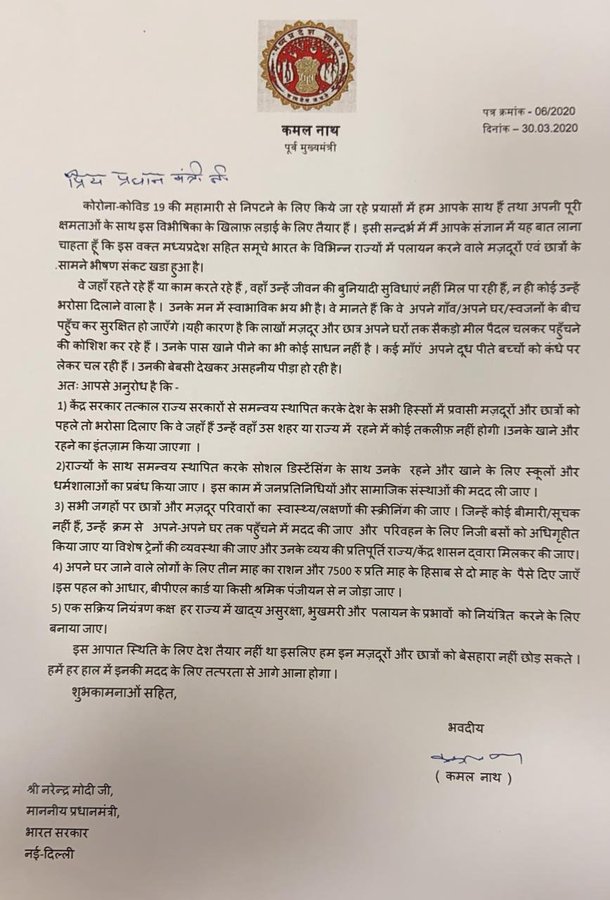 मध्यप्रदेश शासन
पत्र क्रमांक - 06/2020
दिनांक – 30.03.2020
कमल नाथ
पूर्व मुख्यमंत्री
प्रिय प्रधान मंत्री जी
कोरोना-कोविड 19 की महामारी से निपटने के लिए किये जा रहे प्रयासों में हम आपके साथ हैं तथा अपनी पूरी
क्षमताओं के साथ इस विभीषिका के खिलाफ़ लड़ाई के लिए तैयार हैं । इसी सन्दर्भ में मैं आपके संज्ञान में यह बात लाना
चाहता हूँ कि इस वक्त मध्यप्रदेश सहित समूचे भारत के विभिन्न राज्यों में पलायन करने वाले मज़दूरों एवं छात्रों के
.सामने भीषण संकट खडा हुआ है।
वे जहाँ रहते रहे हैं या काम करते रहे हैं , वहाँ उन्हें जीवन की बुनियादी सुविधाएं नहीं मिल पा रही हैं, न ही कोई उन्हें
भरोसा दिलाने वाला है । उनके मन में स्वाभाविक भय भी है। वे मानते हैं कि वे अपने गाँव/अपने घर/स्वजनों के बीच
पहुँच कर सुरक्षित हो जाएँगे ।यही कारण है कि लाखों मज़दूर और छात्र अपने घरों तक सैकड़ो मील पैदल चलकर पहुँचने
की कोशिश कर रहे हैं । उनके पास खाने पीने का भी कोई साधन नहीं है । कई माएँ अपने दूध पीते बच्चों को कंधे पर
लेकर चल रही हैं । उनकी बेबसी देखकर असहनीय पीड़ा हो रही है।
अतः आपसे अनुरोध है कि -
1) केंद्र सरकार तत्काल राज्य सरकारों से समन्वय स्थापित करके देश के सभी हिस्सों में प्रवासी मज़दूरों और छात्रों को
पहले तो भरोसा दिलाए कि वे जहाँ हैं उन्हें वहाँ उस शहर या राज्य में रहने में कोई तकलीफ़ नहीं होगी ।उनके खाने और
रहने का इंतज़ाम किया जाएगा ।
2)राज्यों के साथ समन्वय स्थापित करके सोशल डिस्टेंसिंग के साथ उनके रहने और खाने के लिए स्कूलों और
धर्मशालाओं का प्रबंध किया जाए । इस काम में जनप्रतिनिधियों और सामाजिक संस्थाओं की मदद ली जाए ।
3) सभी जगहों पर छात्रों और मज़दूर परिवारों का स्वास्थ्य/लक्षणों की स्क्रीनिंग की जाए । जिन्हें कोई बीमारी/सूचक
नहीं हैं, उन्हें क्रम से अपने-अपने घर तक पहुँचने में मदद की जाए और परिवहन के लिए निजी बसों को अधिगृहीत
किया जाए या विशेष ट्रेनों की व्यवस्था की जाए और उनके व्यय की प्रतिपूर्ति राज्य/केंद्र शासन द्वारा मिलकर की जाए।
4) अपने घर जाने वाले लोगों के लिए तीन माह का राशन और 7500 रु प्रति माह के हिसाब से दो माह के पैसे दिए जाएँ
।इस पहल को आधार, बीपीएल कार्ड या किसी श्रमिक पंजीयन से न जोड़ा जाए ।
5) एक सक्रिय नियंत्रण कक्ष हर राज्य में खाद्य असुरक्षा, भुखमरी और पलायन के प्रभावों को नियंत्रित करने के लिए
बनाया जाए।
इस आपात स्थिति के लिए देश तैयार नहीं था इसलिए हम इन मज़दूरों और छात्रों को बेसहारा नहीं छोड़ सकते ।
हमें हर हाल में इनकी मदद के लिए तत्परता से आगे आना होगा ।
शुभकामनाओं सहित,
भवदीय
( कमल नाथ )
श्री नरेन्द्र मोदी जी,
माननीय प्रधानमंत्री,
भारत सरकार
नई-दिल्ली